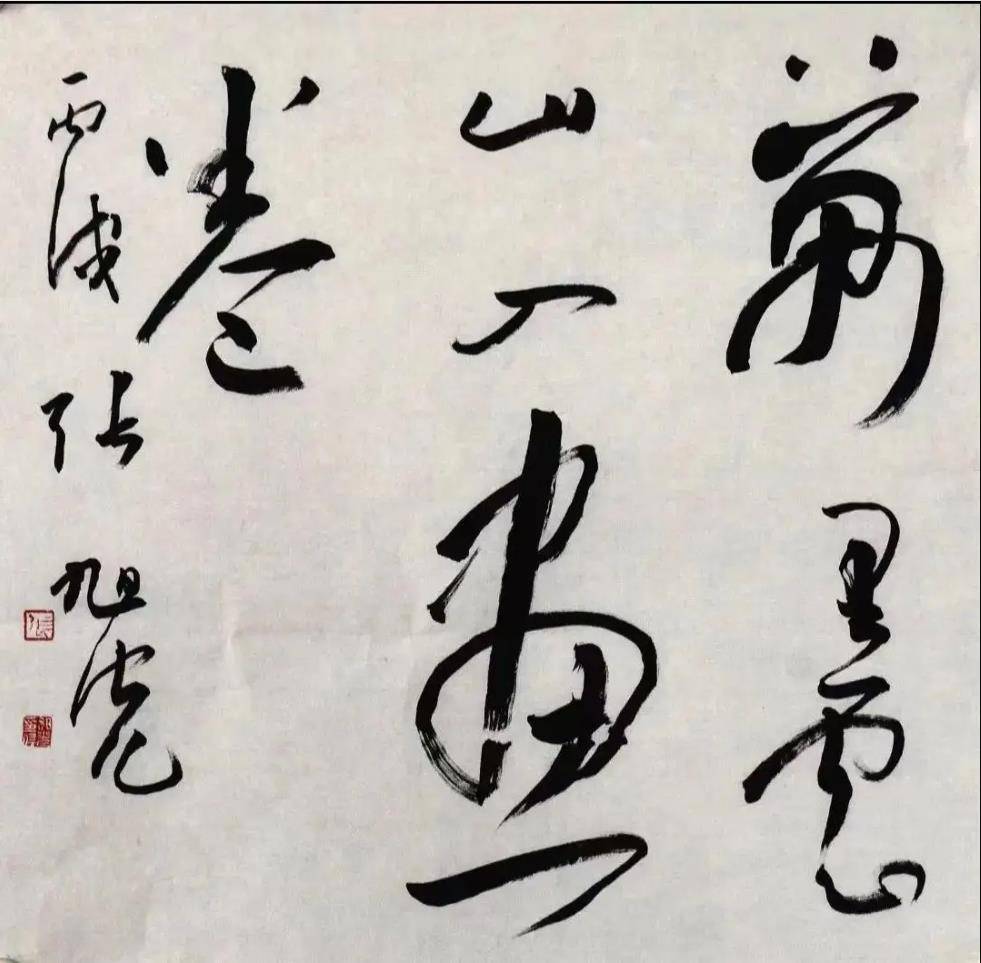 萬里雲
山入畫
卷
丙戌 張旭光